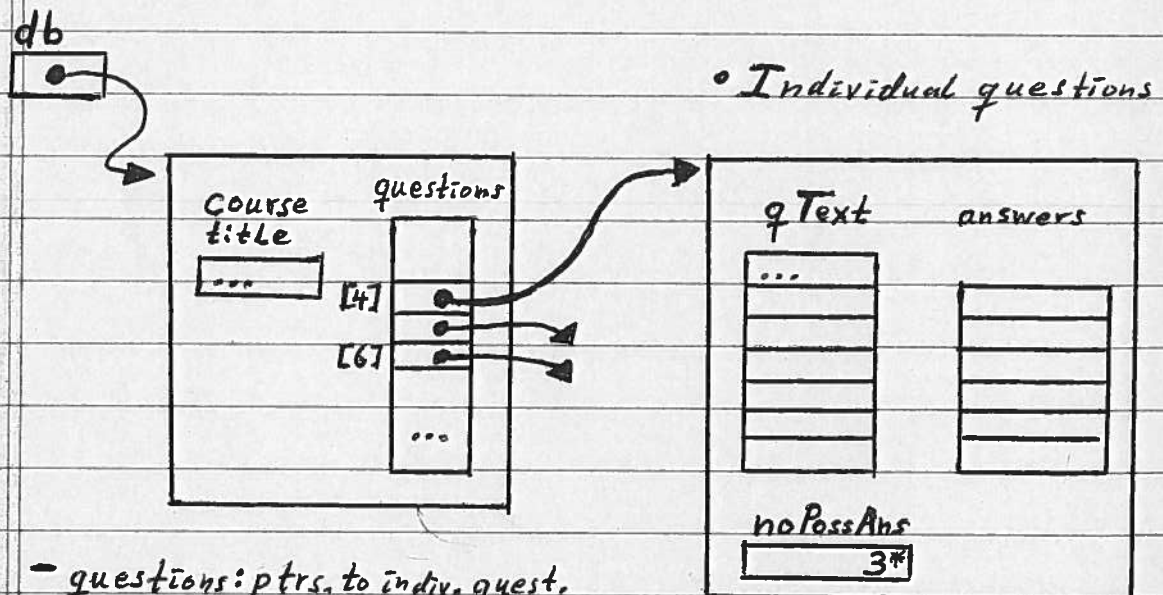 db
• Individual questions
questions
course
title
...
[4]
[6]
...
qText
answers
...
noPossAns
3*
- questions: ptrs. to indiv. quest.